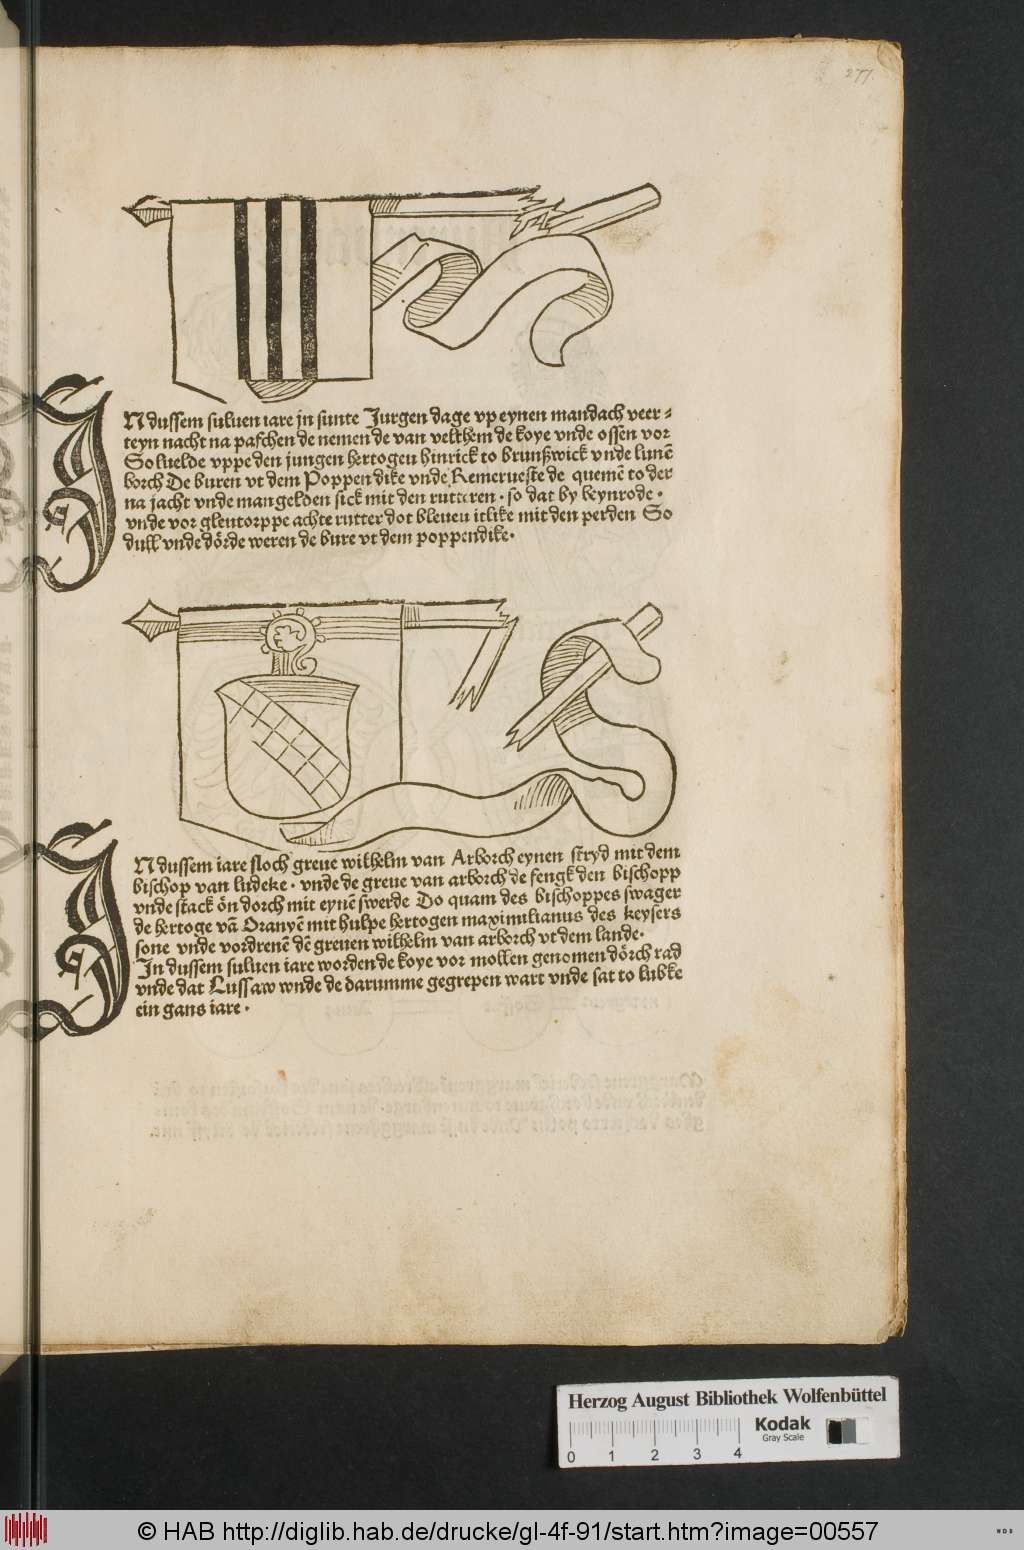 277
IN dussem suluen iare jn sunte Jurgen dage vp eynen mandach veer⸗
teyn nacht na paschen de nemen de van velthem de koye vnde ossen vor
Soluelde vppe den jungen hertogen hinrick to brunßwick vnde lunē
borch De buren vt dem Poppendike vnde Remerueste de quemē to der
na jacht vnde mangelden sick mit den rutteren · so dat by beynrode ·
vnde vor glentorppe achte rutter dot bleuen itlike mit den perden So
dull vnde dörde weren de bure vt dem poppendike ·
IN dussem iare sloch greue wilhelm van Arborch eynen stryd mit dem
bischop van ludeke · vnde de greue van arborch de fengk den bischopp
vnde stack ön dorch mit eynē swerde Do quam des bischoppes swager
de hertoge vā Oranyē mit hulpe hertogen maximilianus des keysers
sone vnde vordrenē dē greuen wilhelm van arborch vt dem lande ·
In dussem suluen iare worden de koye vor mollen genomen dörch rad
vnde dat Lussaw wnde de darumme gegrepen wart vnde sat to lubke
ein gans iare ·
Herzog August Bibliothek Wolfenbüttel
Kodak
Gray Scale
0 1 2 3 4
© HAB http://diglib.hab.de/drucke/gl-4f-91/start.htm?image=00557